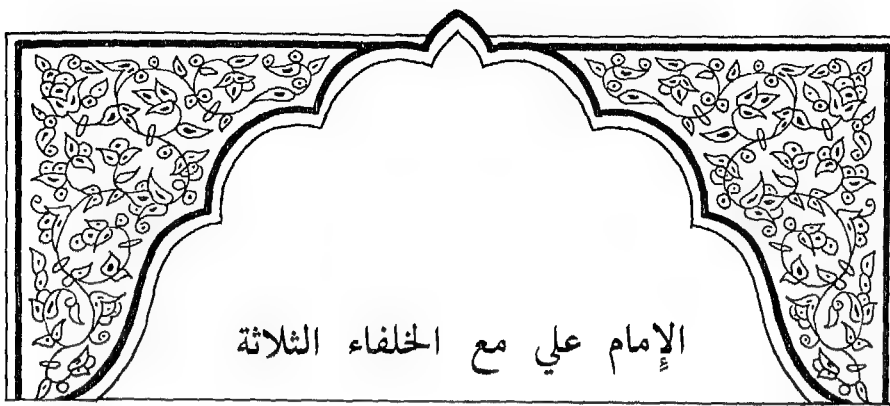 الإِمام علي مع الخلفاء الثلاثة